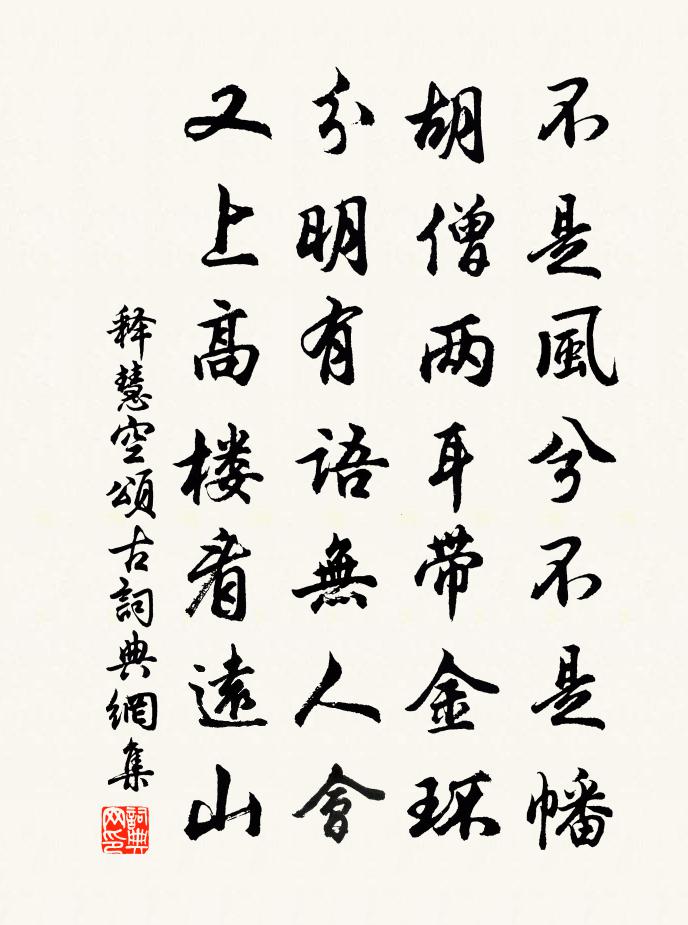 不是風兮不是幡
胡僧两耳帶金环
分明有語無人會
又上高楼看遠山
释慧空頌古詞典網集
詞典网印